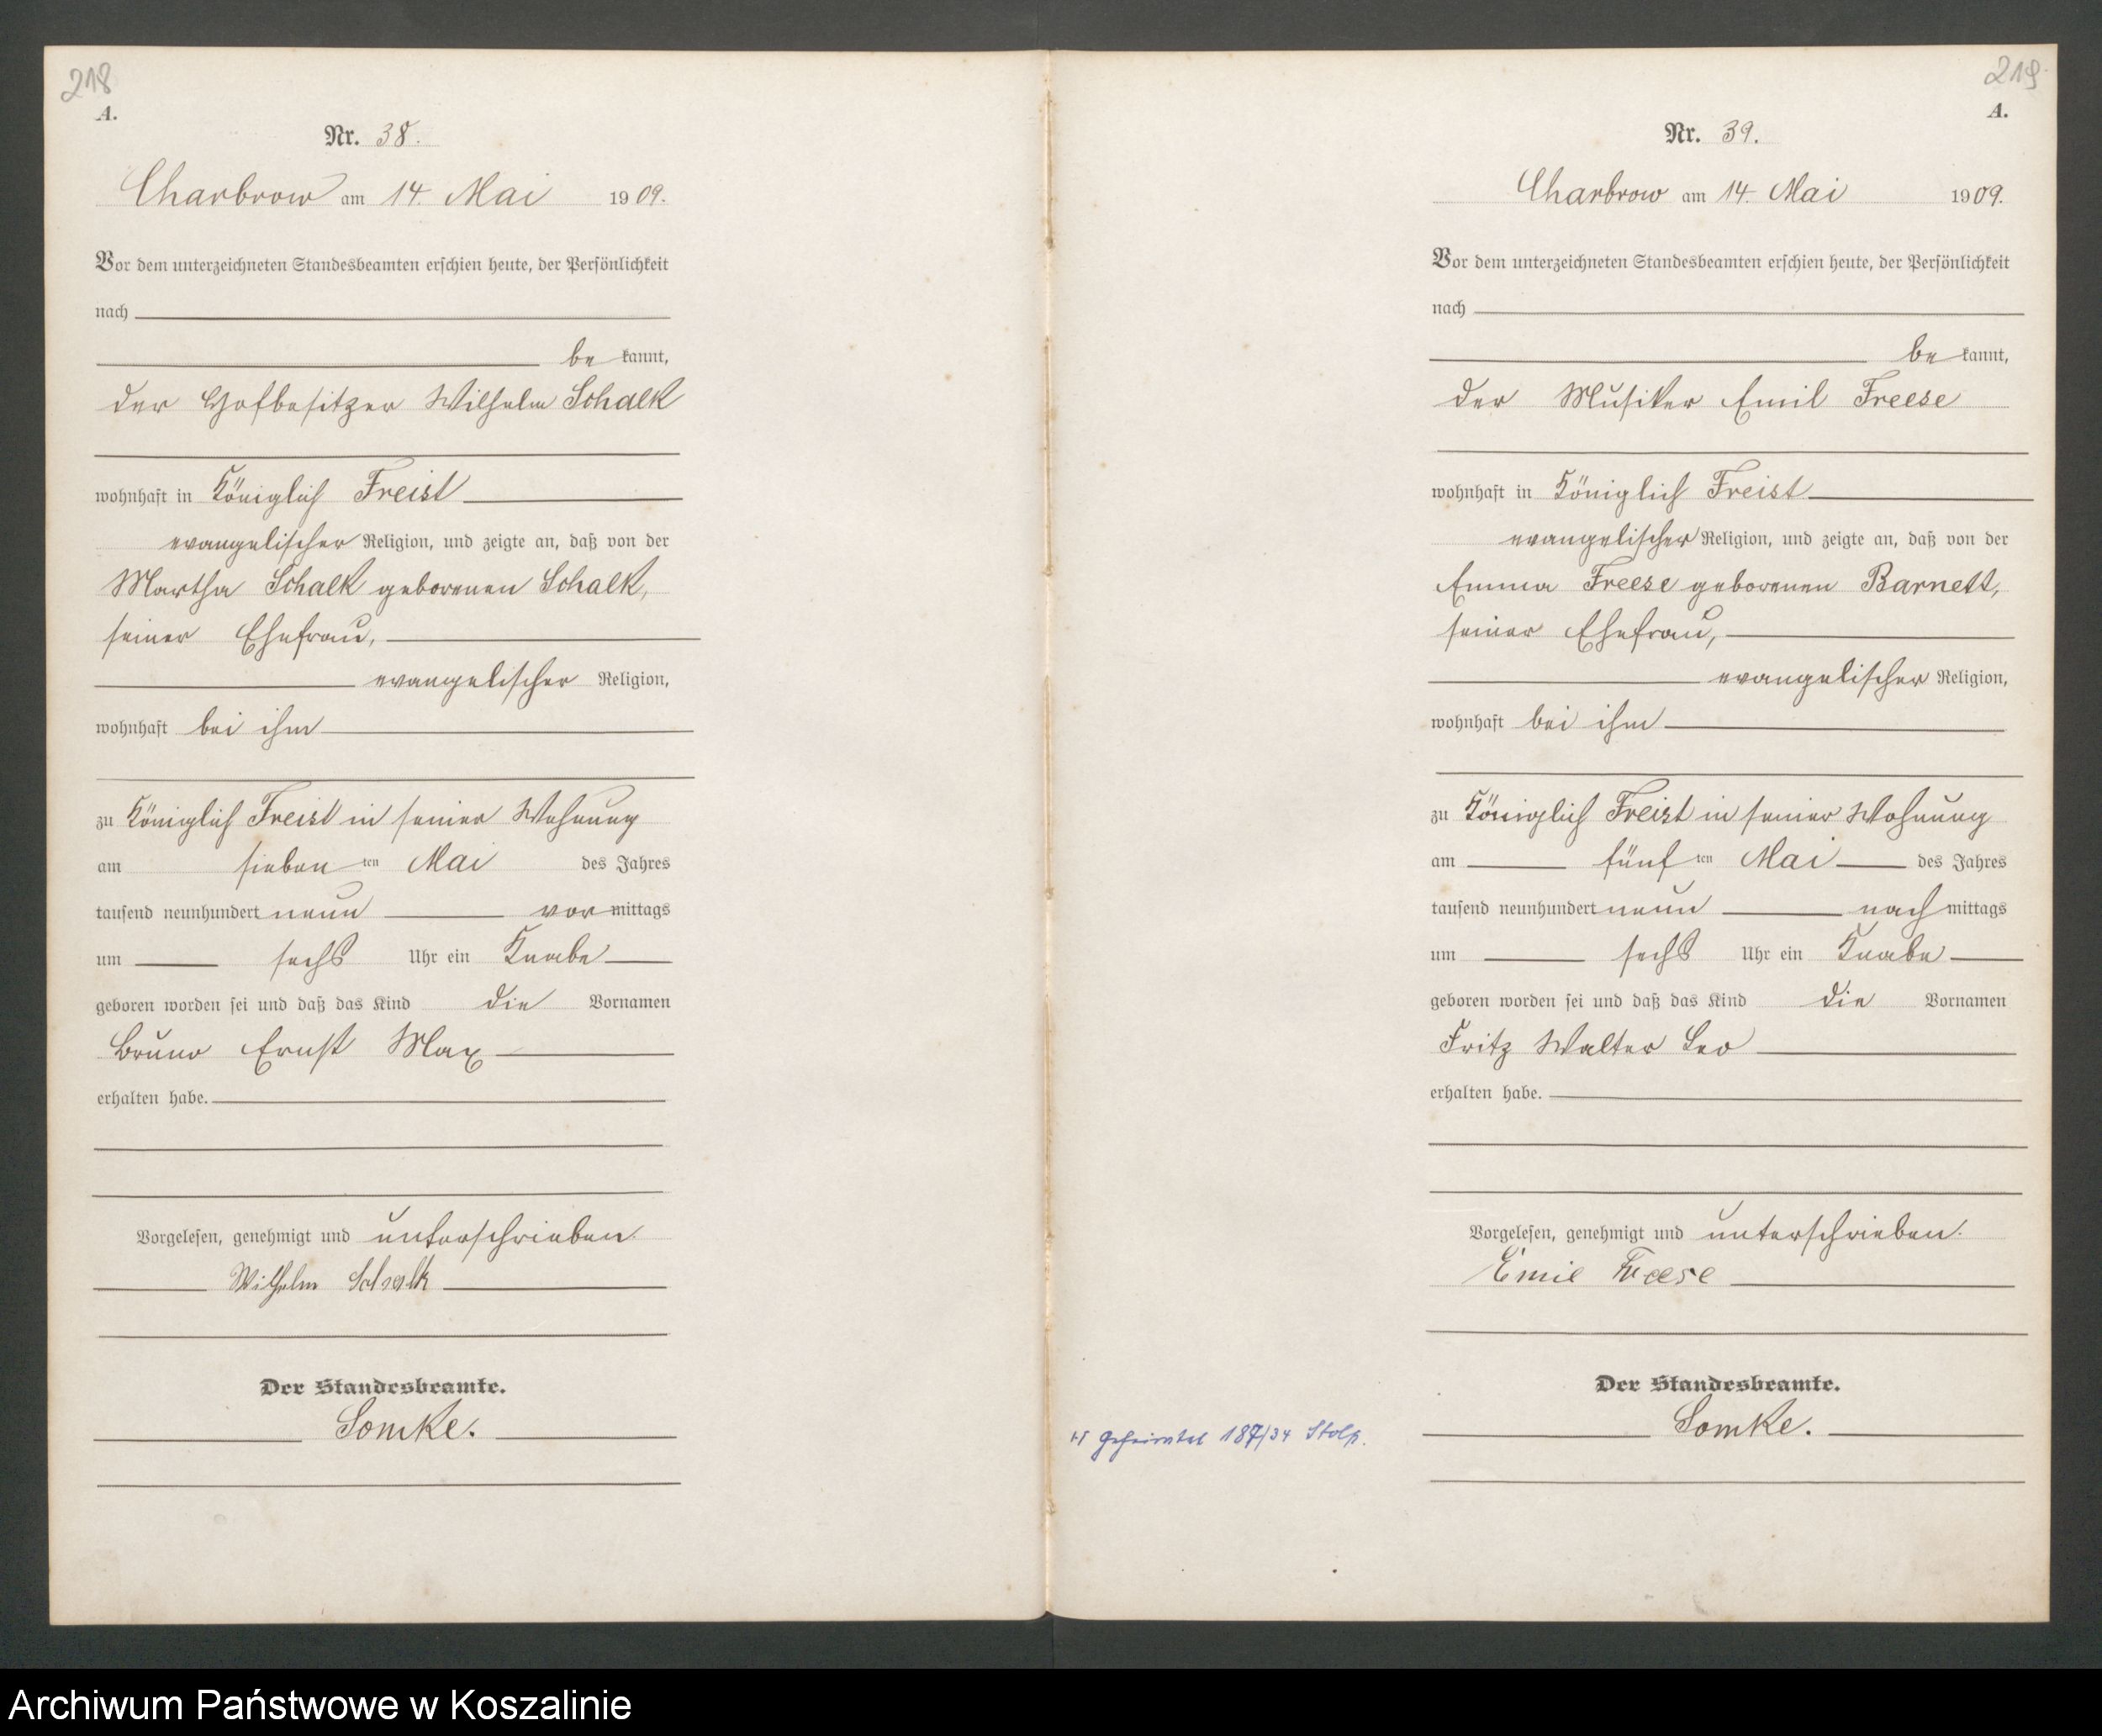 218
A.
Nr. 38.
Charbrow am 14. Mai 1909.
Vor dem unterzeichneten Standesbeamten erschien heute, der Persönlichkeit
nach
be kannt,
der Hofbesitzer Wilhelm Schalk
wohnhaft in Königlich Freist
evangelischer Religion, und zeigte an, daß von der
Martha Schalk geborenen Schalk,
seiner Ehefrau,
evangelischer Religion,
wohnhaft bei ihm
zu Königlich Freist in seiner Wohnung
am sieben ten Mai des Jahres
tausend neunhundert neun vor mittags
um sechs Uhr ein Knabe
geboren worden sei und daß das Kind die Vornamen
Bruno Ernst Max
erhalten habe.
Vorgelesen, genehmigt und unterschrieben.
Wilhelm Schalk
Der Standesbeamte.
Somke.
219
A.
Nr. 39.
Charbrow am 14. Mai 1909.
Vor dem unterzeichneten Standesbeamten erschien heute, der Persönlichkeit
nach
be kannt,
der Musiker Emil Freese
wohnhaft in Königlich Freist
evangelischer Religion, und zeigte an, daß von der
Emma Freese geborenen Barnett,
seiner Ehefrau,
evangelischer Religion,
wohnhaft bei ihm
zu Königlich Freist in seiner Wohnung
am fünf ten Mai des Jahres
tausend neunhundert neun nach mittags
um sechs Uhr ein Knabe
geboren worden sei und daß das Kind die Vornamen
Fritz Walter Leo
erhalten habe.
Vorgelesen, genehmigt und unterschrieben.
Emil Freese
Der Standesbeamte.
Somke.
187/34 Stolp.
Archiwum Państwowe w Koszalinie